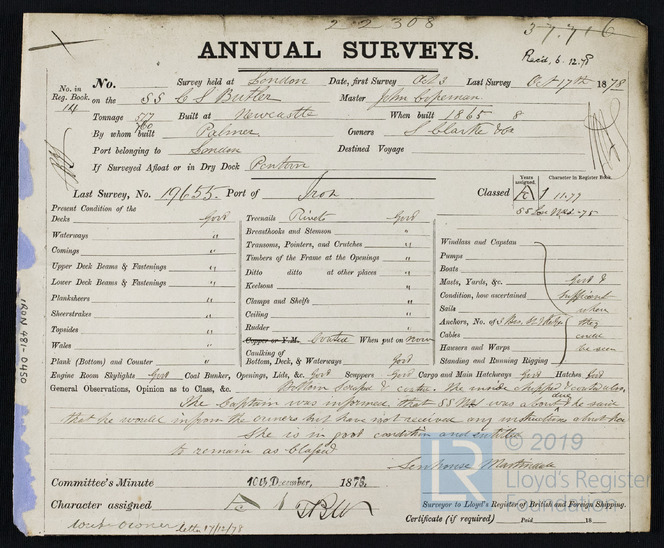 22308
37.716
Recd, 6.12.78
ANNUAL SURVEYS.
No. in Reg. Book.
14
No. Survey held at London Date, first Survey Oct 3 Last Survey Oct 17th 1878
on the SS C S Butler Master John Copeman
Tonnage 517 Built at Newcastle When built 1865 8
By whom built Palmer Owners S Clarke & Co
Port belonging to London Destined Voyage
If Surveyed Afloat or in Dry Dock Pontoon
Last Survey, No. 19655 Port of Iron Classed
Years assigned.
Character in Register Book.
A 1 11.77
SS Lon No2-75
Present Condition of the
Decks Good
Waterways "
Comings "
Upper Deck Beams & Fastenings "
Lower Deck Beams & Fastenings "
Planksheers "
Sheerstrakes "
Topsides "
Wales "
Plank (Bottom) and Counter "
Treenails Rivets Good
Breasthooks and Stemson "
Transoms, Pointers, and Crutches "
Timbers of the Frame at the Openings "
Ditto ditto at other places "
Keelsons "
Clamps and Shelfs "
Ceiling "
Rudder "
Copper or Y.M. Coated When put on now
Caulking of
Bottom, Deck, & Waterways Good
Windlass and Capstan
Pumps
Boats
Masts, Yards, &c. Good &
Condition, how ascertained sufficient
Sails when
Anchors, No. of they
Cables could
Hawsers and Warps be seen
Standing and Running Rigging
Engine Room Skylights Good Coal Bunker, Openings, Lids, &c. Good Scuppers Good Cargo and Main Hatchways Good Hatches Good
General Observations, Opinion as to Class, &c. Bottom Scraped & coated. The inside chipped & coated also.
The Captain was informed that SS No2 was about due & he said
that he would inform the owners but have not received any instructions about her
She is in good condition and entitled
to remain as Classed
Senhouse Martindale
Committee's Minute 10th December, 1878.
Character assigned A 1
Surveyor to Lloyd's Register of British and Foreign Shipping.
Certificate (if required) Paid 18
letter 17/12/78
IRON 481-0450
© 2019
LR
Lloyd's Register
Foundation